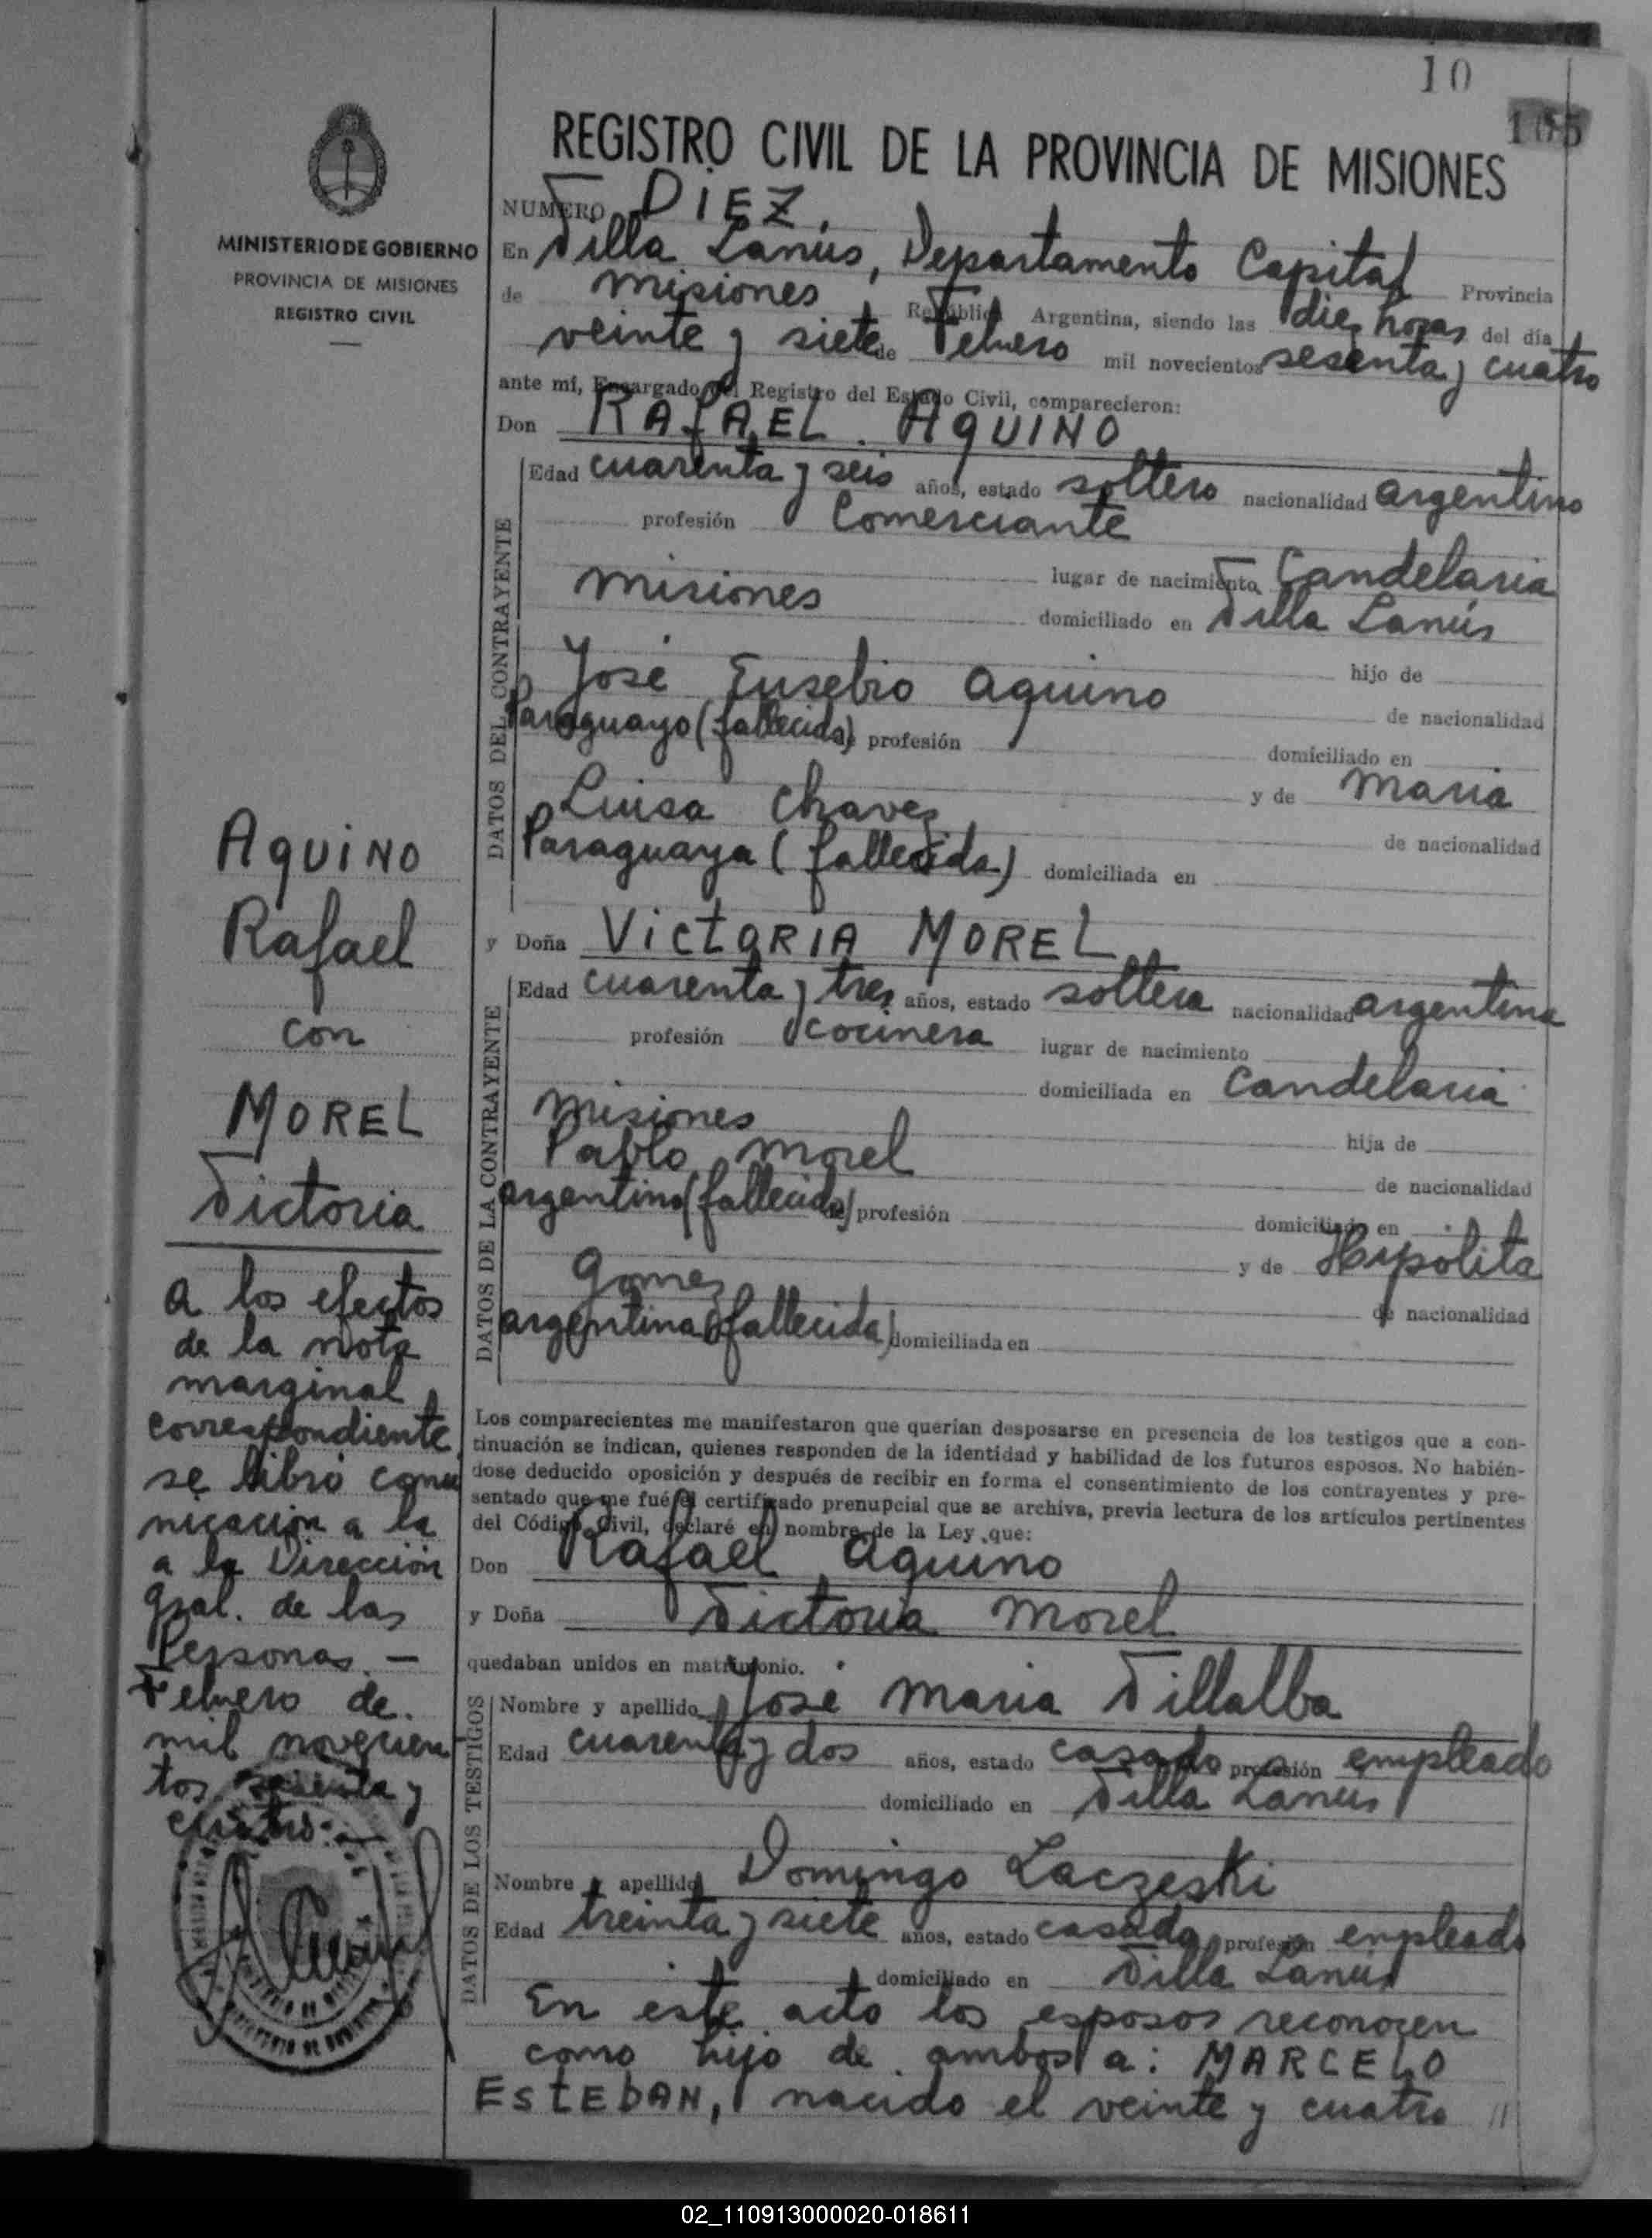 10
105
REGISTRO CIVIL DE LA PROVINCIA DE MISIONES
MINISTERIO DE GOBIERNO
PROVINCIA DE MISIONES
REGISTRO CIVIL
NUMERO DiEZ.
En Villa Lanús, Departamento Capital Provincia
de Misiones, República Argentina, siendo las diez horas del día
veinte y siete de Febrero mil novecientos sesenta y cuatro
ante mí, Encargado del Registro del Estado Civil, comparecieron:
Don RAFAEL AQUINO
DATOS DEL CONTRAYENTE
Edad cuarenta y seis años, estado soltero nacionalidad argentino
profesión Comerciante
lugar de nacimiento Candelaria
Misiones domiciliado en Villa Lanús
hijo de
José Eusebio Aquino de nacionalidad
Paraguayo (fallecido) profesión domiciliado en
y de Maria
Luisa Chavez de nacionalidad
Paraguaya (fallecida) domiciliada en
y Doña VictoRIA MOREL
DATOS DE LA CONTRAYENTE
Edad cuarenta y tres años, estado soltera nacionalidad argentina
profesión cocinera lugar de nacimiento
domiciliada en Candelaria
Misiones hija de
Pablo Morel de nacionalidad
argentino (fallecido) profesión domiciliado en
y de Hipolita
Gomez de nacionalidad
argentina (fallecida) domiciliada en
Los comparecientes me manifestaron que querían desposarse en presencia de los testigos que a con-
tinuación se indican, quienes responden de la identidad y habilidad de los futuros esposos. No habién-
dose deducido oposición y después de recibir en forma el consentimiento de los contrayentes y pre-
sentado que me fué el certificado prenupcial que se archiva, previa lectura de los artículos pertinentes
del Código Civil, declaré en nombre de la Ley que:
Don Rafael Aquino
y Doña Victoria Morel
quedaban unidos en matrimonio.
DATOS DE LOS TESTIGOS
Nombre y apellido José Maria Villalba
Edad cuarenta y dos años, estado casado profesión empleado
domiciliado en Villa Lanús
Nombre y apellido Domingo Laczeski
Edad treinta y siete años, estado casado profesión empleado
domiciliado en Villa Lanús
En este acto los esposos reconocen
como hijo de ambos a: MARCELO
EstEbAN, nacido el veinte y cuatro //
AQUiNO
Rafael
con
MOREL
Victoria
a los efectos
de la nota
marginal
correspondiente
se libró comu
nicación a la
a la Dirección
Gral. de las
Personas. —
Febrero de
mil novecien
tos sesenta y
cuatro.
02_110913000020-018611